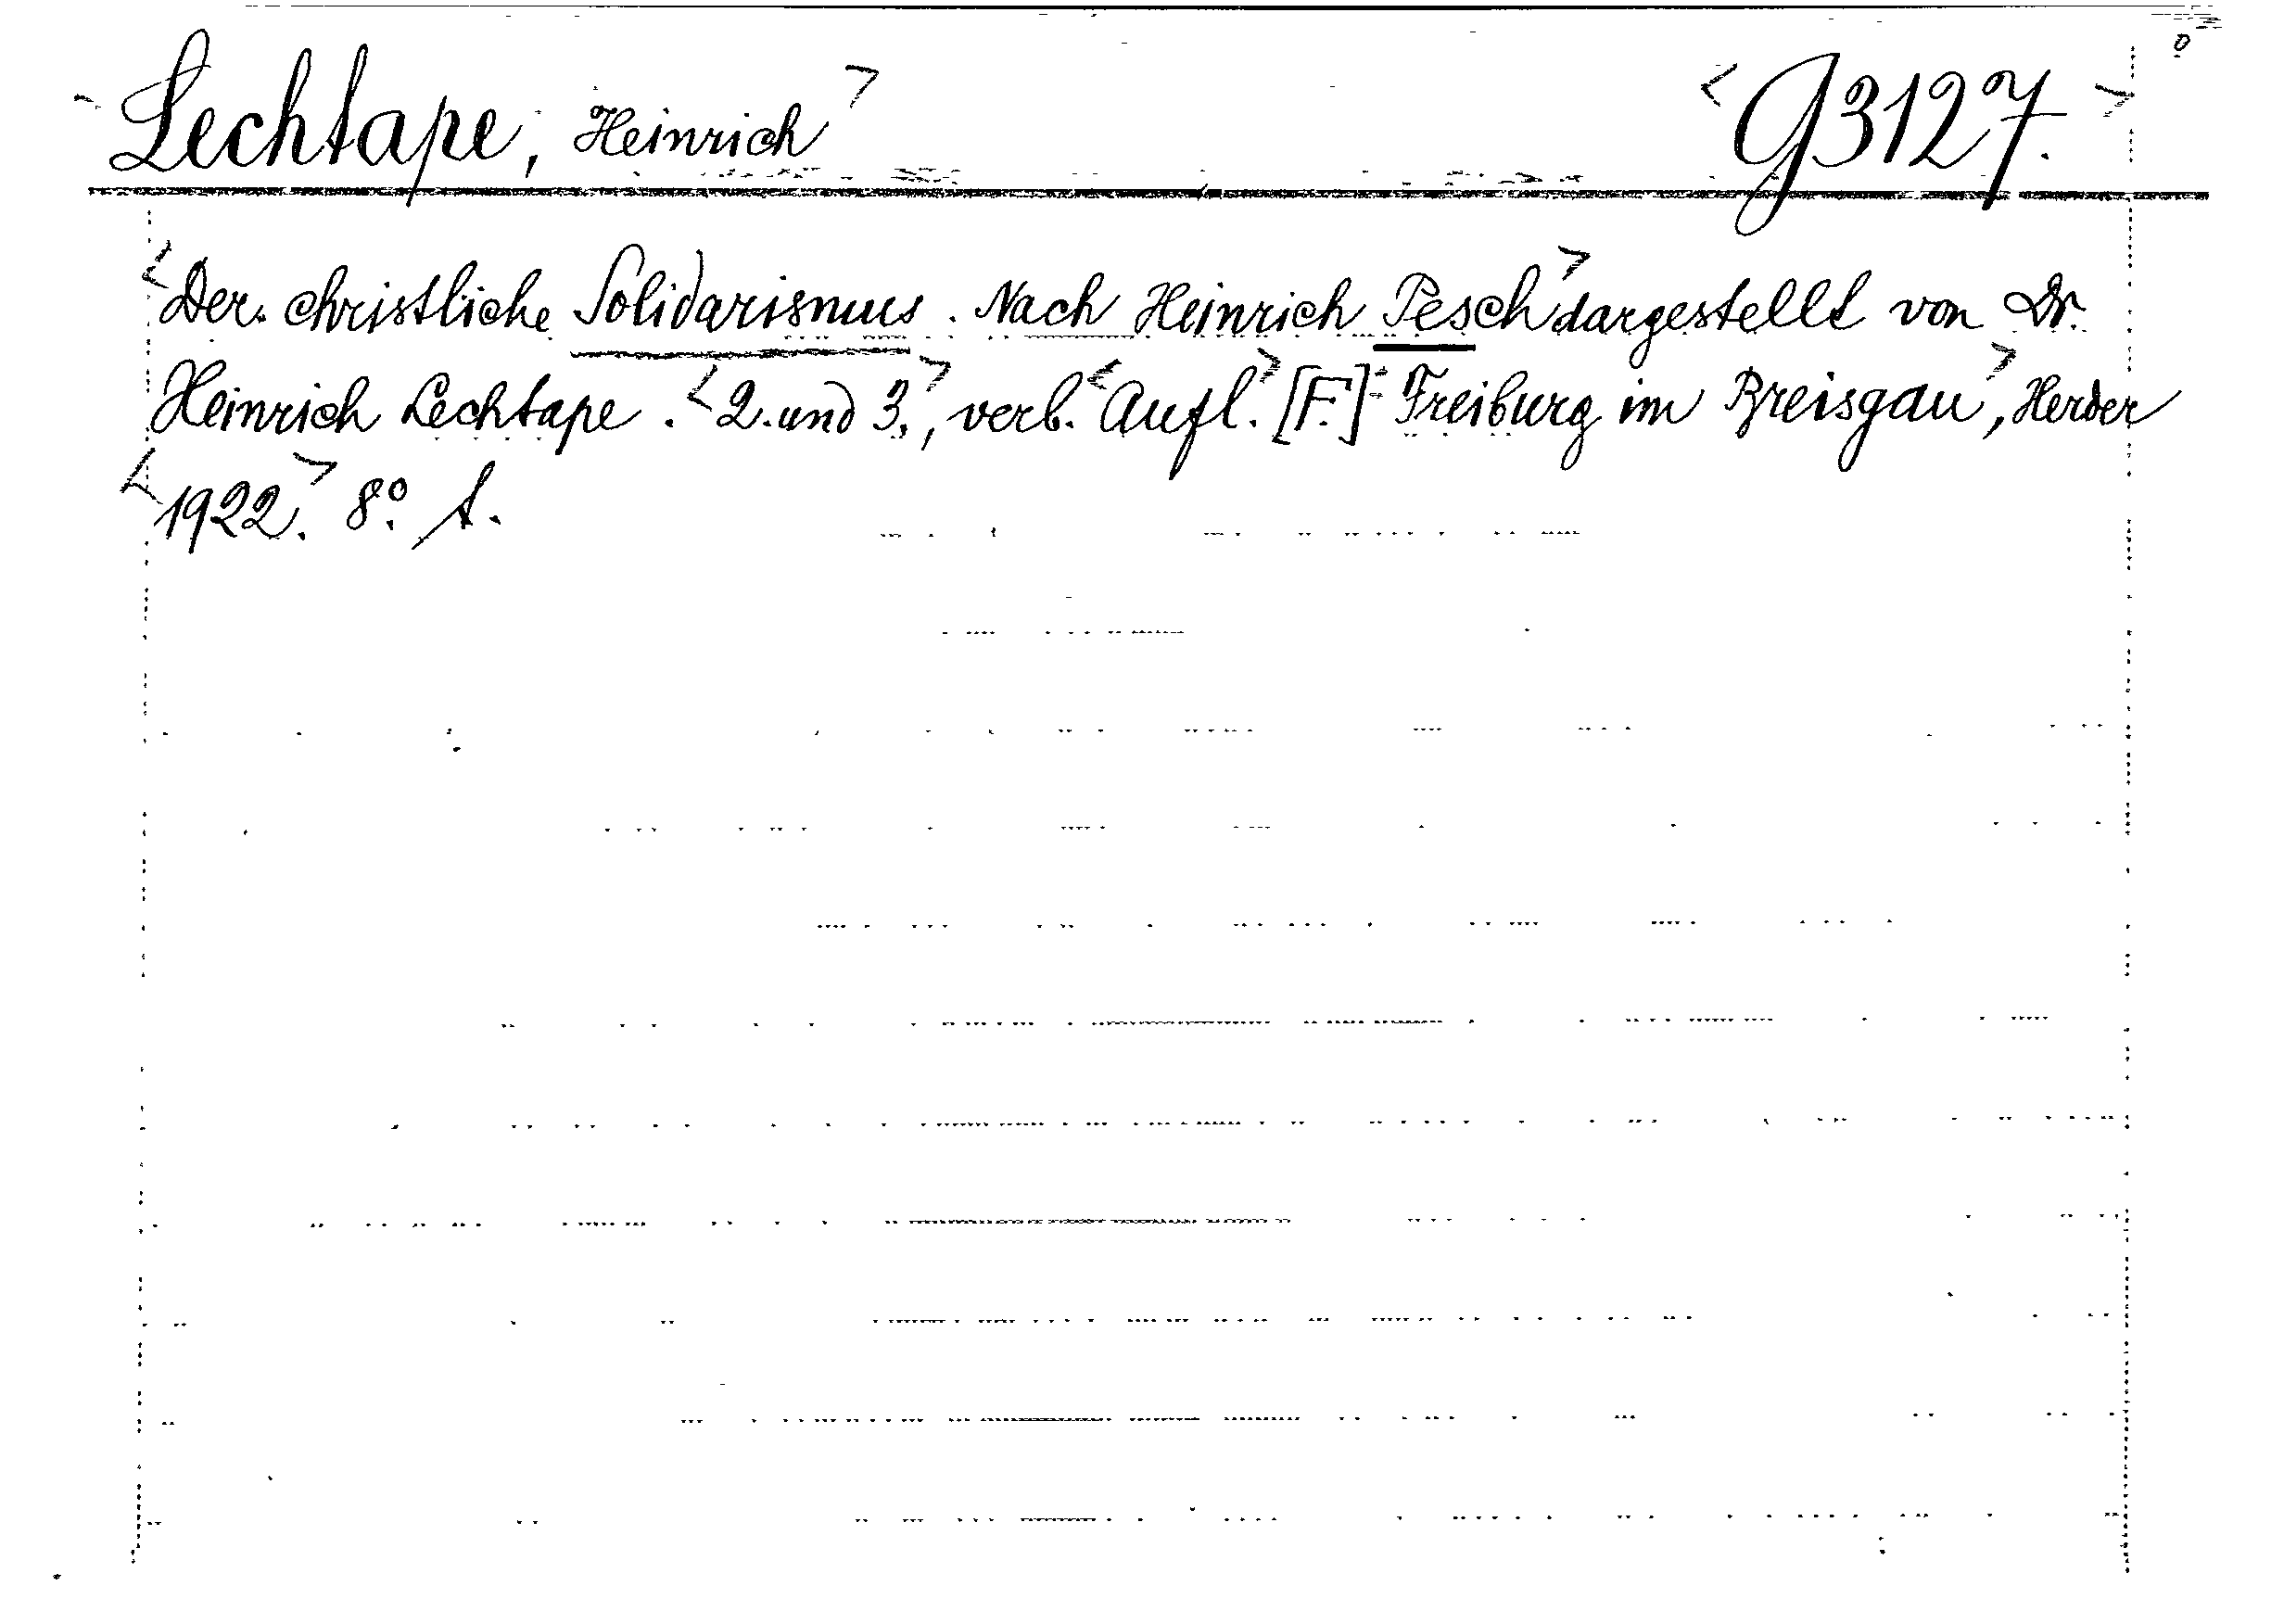 <Lechtape, Heinrich> <G3127.>
<Der christliche Solidarismus. Nach Heinrich Pesch> dargestellt von Dr.
Heinrich Lechtape. <2. und 3.>, verb. <Aufl.> [F.] <Freiburg im Breisgau>, Herder
<1922.> 8°.